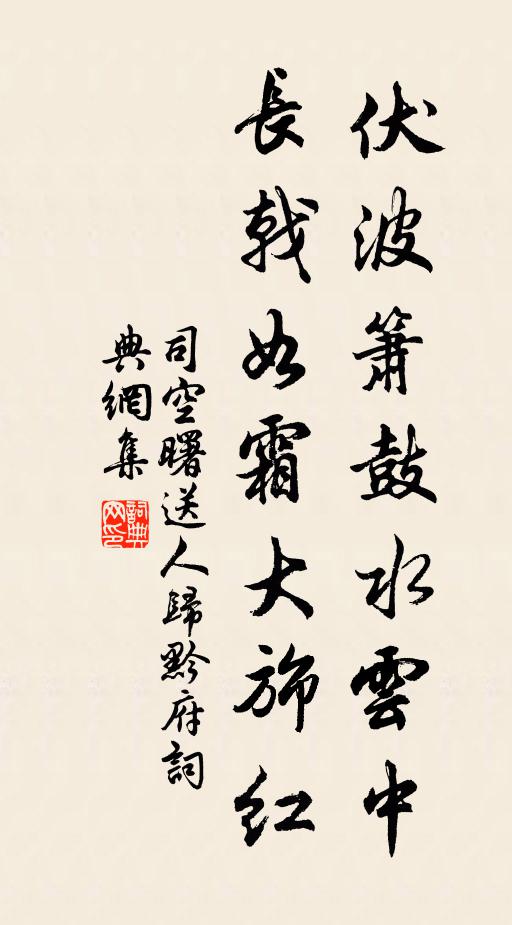 伏波簫鼓水雲中
長戟如霜大旆紅
司空曙送人歸黔府詞
典網集
詞典
网印